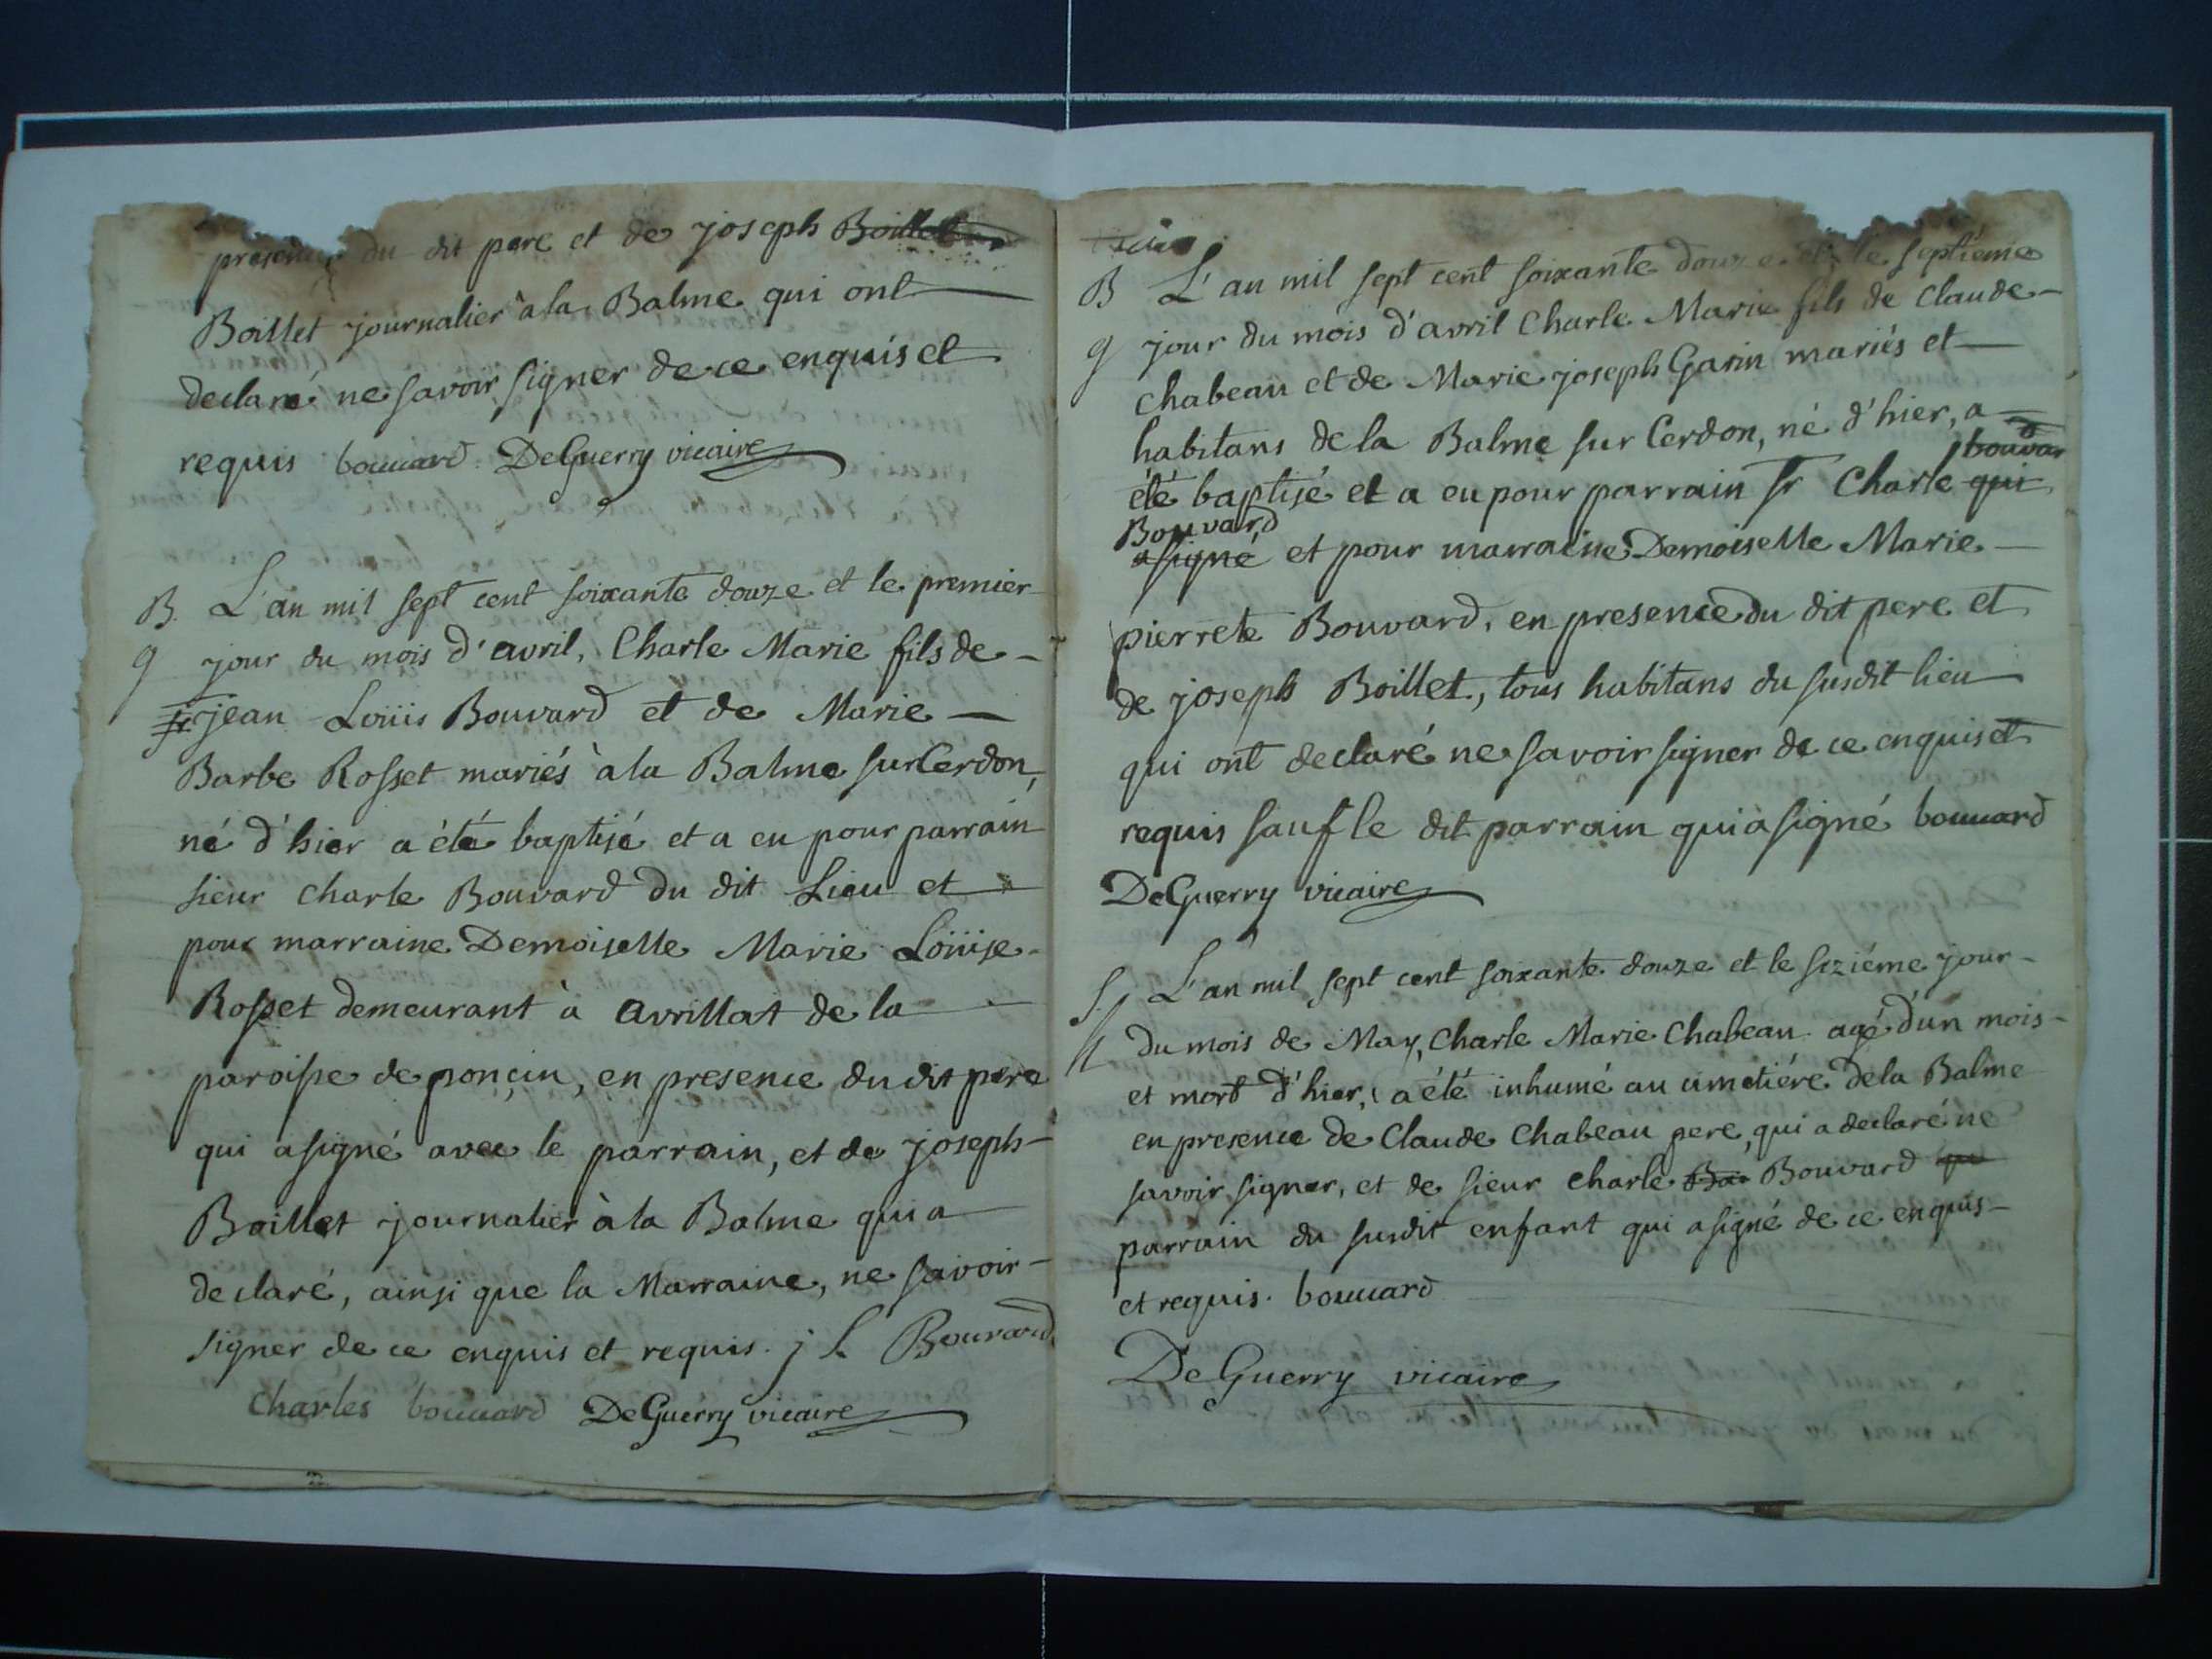 presence du dit pere et de joseph Boillet
Boillet journalier à la Balme qui ont
declaré ne savoir signer de ce enquis et
requis bouuard DeGuerry vicaire
B. L'an mil sept cent soixante douze et le premier
g jour du mois d'avril, Charle Marie fils de
sr jean Loüis Bouvard et de Marie
Barbe Rosset mariés à la Balme sur Cerdon,
né d'hier a été baptisé et a eu pour parrain
sieur Charle Bouvard du dit Lieu et
pour marraine Demoiselle Marie Loüise
Rosset demeurant à avrillat de la
paroisse de ponçin, en presence du dit pere
qui a signé avec le parrain, et de joseph
Boillet journalier à la Balme qui a
declaré, ainsi que la Marraine, ne savoir
signer de ce enquis et requis. j L Bouvard
Charles bouuard DeGuerry vicaire
B L'an mil sept cent soixante douze et le septiéme
g jour du mois d'avril Charle Marie fils de Claude
Chabeau et de Marie joseph Garin mariés et
habitans de la Balme sur Cerdon, né d'hier, a
bouvar
été baptisé et a eu pour parrain sr Charle qui
Bouvard
a signé et pour marraine Demoiselle Marie
pierrete Bouvard, en presence du dit pere et
de joseph Boillet, tous habitans du susdit lieu
qui ont declaré ne savoir signer de ce enquis et
requis sauf le dit parrain qui a signé bouuard
DeGuerry vicaire
S. L'an mil sept cent soixante douze et le seziéme jour
du mois de May, Charle Marie Chabeau agé d'un mois
et mort d'hier, a été inhumé au cimetiére de la Balme
en presence de Claude Chabeau pere, qui a declaré ne
savoir signer, et de sieur Charle Bou Bouvard qu
parrain du susdit enfant qui a signé de ce enquis
et requis. bouuard
DeGuerry vicaire